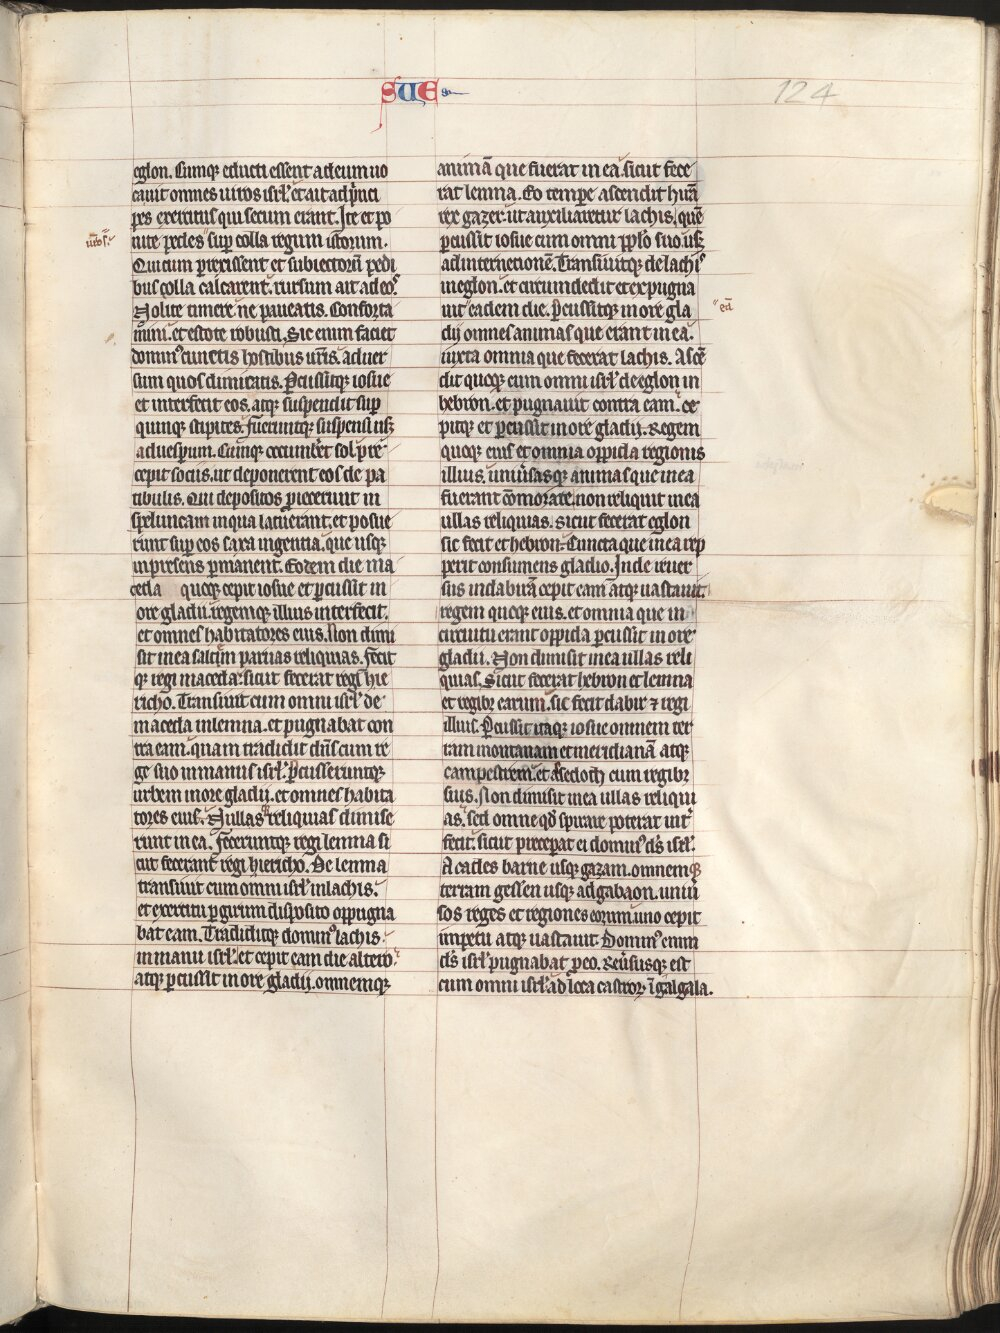 SUE
124
eglon. Cumq; educti essent ad eum uo
cauit omnes uiros isrl'. et ait ad p̄nci
pes exercitus qui secum erant. Ite et po
nite pedes sup colla regum istorum.
Qui cum prexissent et subiectoru̅ pedi
bus colla calcarent. rursum ait ad eos.
Nolite timere ne paueatis. Conforta
mini. et estote robusti. Sic enim faciet
domin' cunctis hostibus ur̄is. aduer
sum quos dimicatis. Pcussitq; iosue
et interfecit eos. atq; suspendit sup
quinq; stipites. fueruntq; suspensi usq;
ad uesp̄um. Cumq; occumb'et sol. p̄re
cepit sociis. ut deponerent eos de pa
tibulis. Qui depositos piecerunt in
speluncam in qua latuerant. et posue
runt sup eos saxa ingentia. que usq;
in presens pmanent. Eodem die ma
ceda quoq; cepit iosue et pcussit in
ore gladii. regemq; illius interfecit.
et omnes habitatores eius. Non dimi
sit in ea saltim paruas reliquias. fecit
q; regi maceda. sicut fecerat regi hie
richo. Transiuit cum omni isrl' de
maceda in lemna. et pugnabat con
tra eam. quam tradidit dn̄s cum re
ge suo in manus isrl'. Pcusseruntq;
urbem in ore gladii. et omnes habita
tores eius. Nullas reliquias dimise
runt in ea. feceruntq; regi lemna si
cut fecerant regi hiericho. De lemna
transiuit cum omni isrl' in lachis.
et exercitu p girum disposito oppugna
bat eam. Tradiditq; domin' lachis
in manu isrl'. et cepit eam die altero.
atq; pcussit in ore gladii. omnemq;
animā que fuerat in ea. sicut fece
rat lemna. Eo tempe ascendit hirā
rex gazer. ut auxiliaretur lachis. quē
pcussit iosue cum omni ppl̄o suo. usq;
ad internetionē. Transiuitq; de lachis
in eglon. et circumdedit et expugna
uit eadem die. Pcussitq; in ore gla
dii omnes animas que erant in ea.
iuxta omnia que fecerat lachis. Ascē
dit quoq; cum omni isrl' de eglon in
hebron. et pugnauit contra eam. ce
pitq; et pcussit in ore gladii. Regem
quoq; eius et omnia oppida regionis
illius. uniu'sasq; animas que in ea
fuerant cōmorate. non reliquit in ea
ullas reliquias. sicut fecerat eglon
sic fecit et hebron. Cuncta que in ea rep
perit consumens gladio. Inde reuer
sus in dabirā cepit eam atq; uastauit.
regem quoq; eius. et omnia que in
circuitu erant oppida pcussit in ore
gladii. Non dimisit in ea ullas reli
quias. Sicut fecerat hebron et lemna
et regib; earum. sic fecit dabir ⁊ regi
illius. Pcussit itaq; iosue omnem ter
ram montanam et meridianā atq;
campestrem. et asedoth cum regib;
suis. Non dimisit in ea ullas reliqui
as. sed omne qd̄ spirare poterat int'
fecit. sicut preceperat ei domin' d̄s isrl'.
A cades barne usq; gazam. omnemq;
terram gessen usq; ad gabaon. uniu'
sos reges et regiones eorum uno cepit
impetu atq; uastauit. Domin' enim
d̄s isrl' pugnabat p eo. Reu'susq; est
cum omni isrl' ad loca castror; ī galgala.